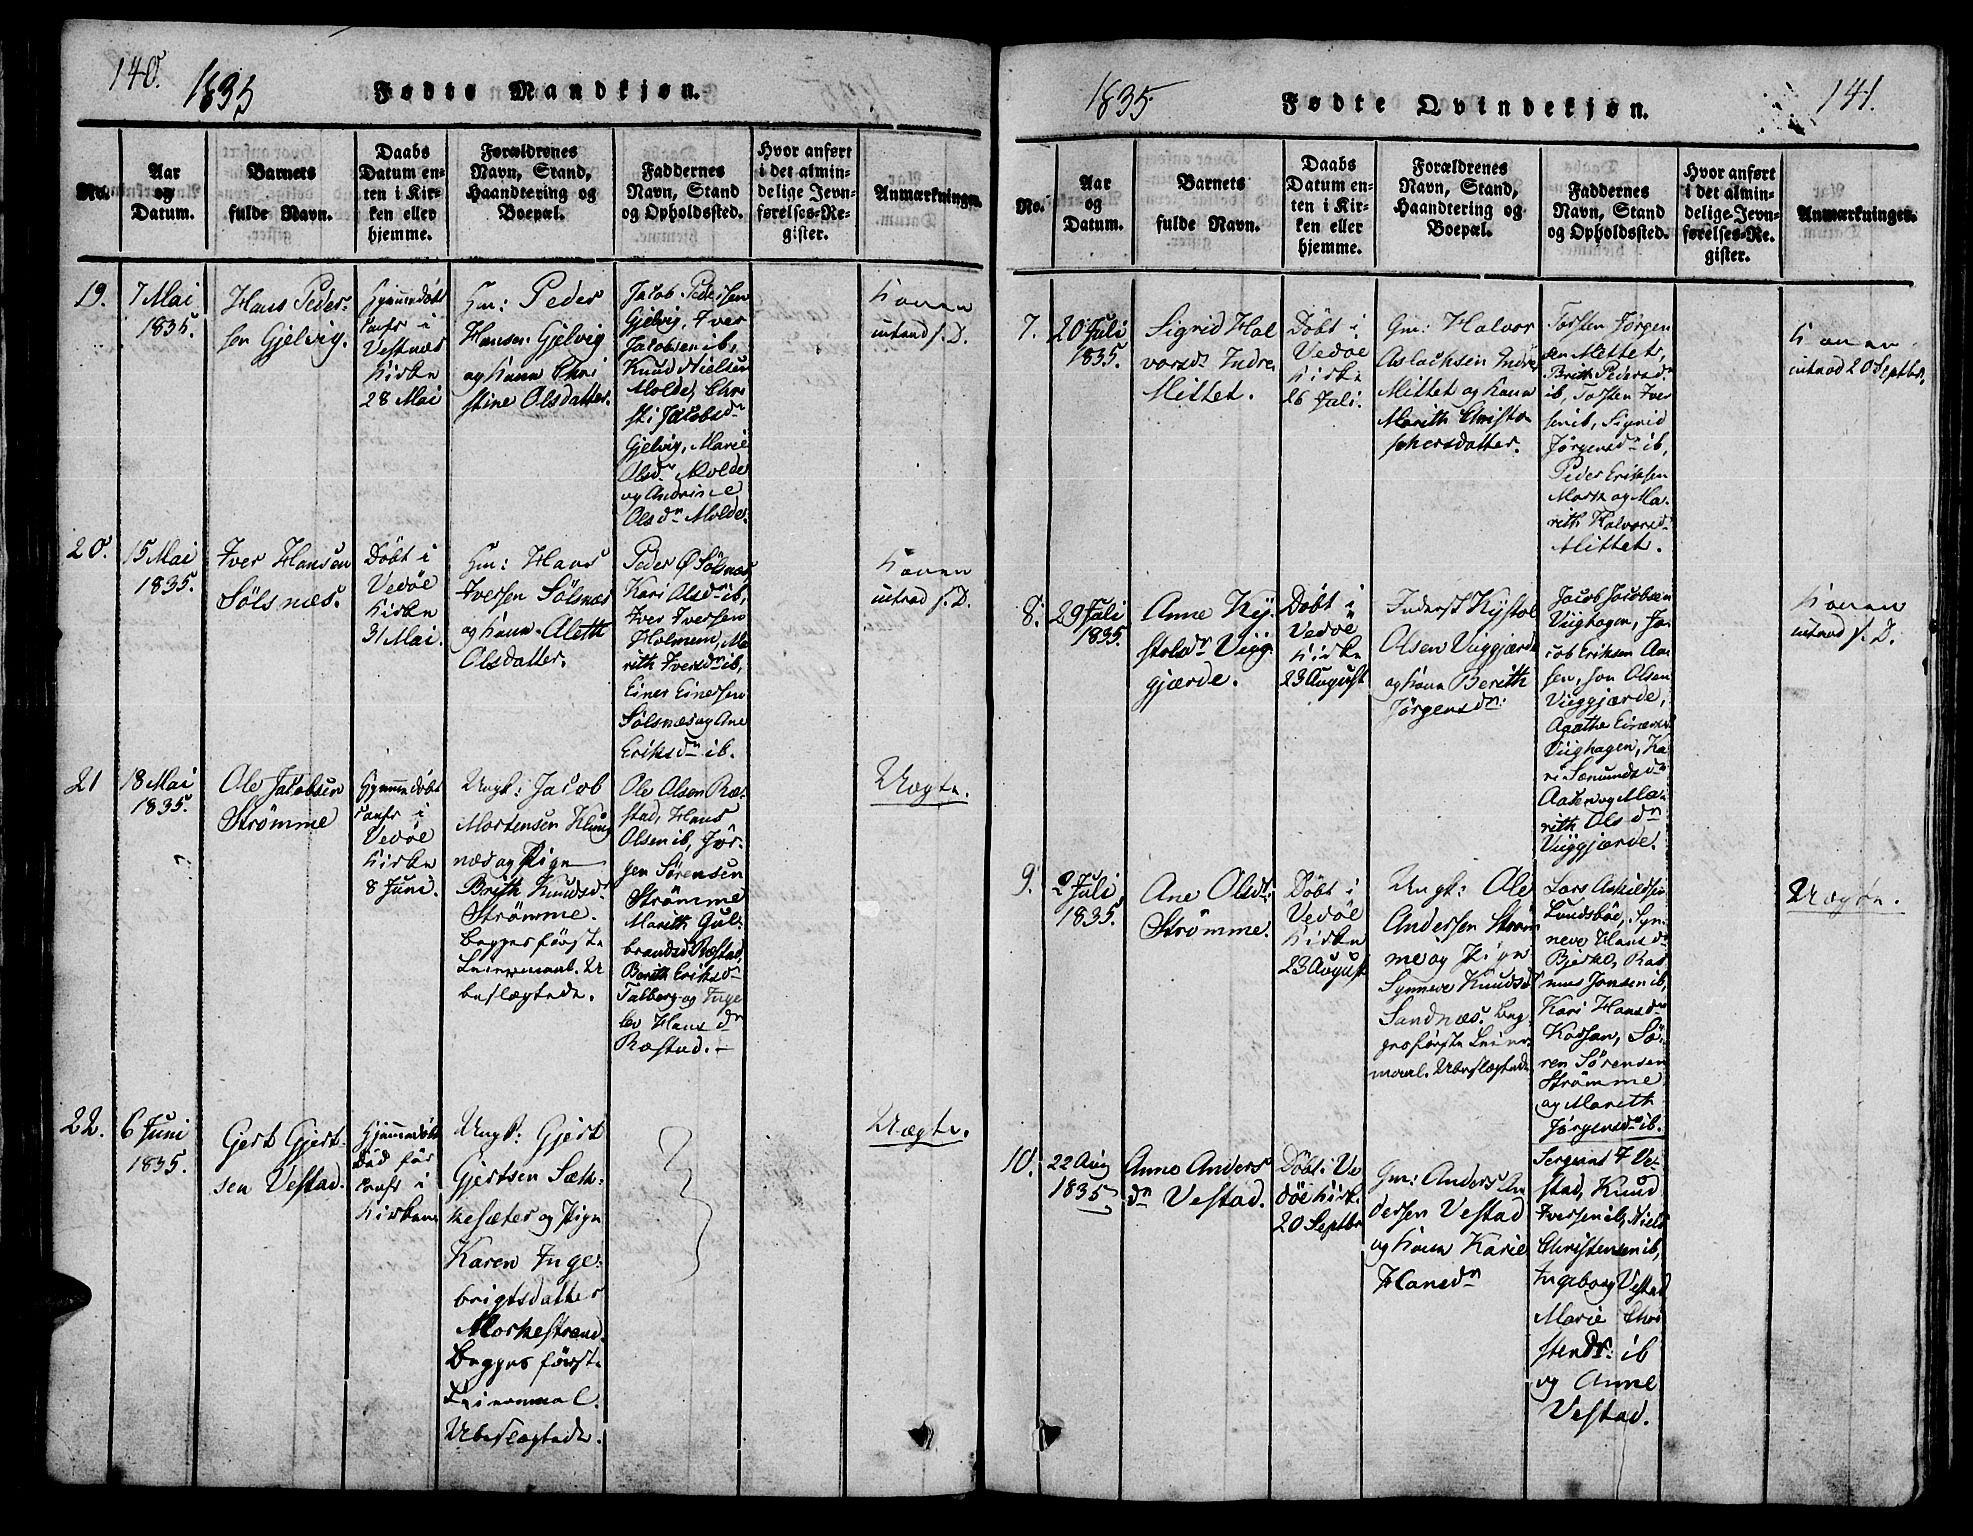 140.
1835
Fødte Mandkjøn.
No.
Aar
og
Datum.
Barnets
fulde Navn.
Daabs
Datum en-
ten i Kir-
ken eller
hjemme.
Forældrenes
Navn, Stand,
Haandtering og
Boepæl.
Faddernes
Navn, Stand
og Opholdssted.
Hvor anført
i det almin-
delige Jevn-
førelses-Re-
gister.
Anmærkninger.
19.
7 Mai
1835.
Hans Peder-
sen Gjelvig.
Hjemmedöbt
conf. i
Vestnæs
Kirke
28 Mai
Gm: Peder
Hansen Gjelvig
og Kone Chri
stine Olsdatter.
Jacob Pedersen
Gjelvig, Iver
Jacobsen ib,
Knud Nielsen
Molde, Chri
sti Jacobsdr
Gjelvig, Marie
Olsdr Molde
og Andrine
Olsdr Molde.
Konen
introd s. D.
20.
15 Mai
1835.
Iver Hansen
Sölsnæs.
Döbt i
Vedöe
Kirke
31 Mai.
Gm: Hans
Iversen Sölsnæs
og Kone Aleth
Olsdatter.
Peder Ø Sölsnæs,
Kari Olsdr ib,
Iver Iversen
Holmem, Ma
rith Iversdr ib,
Einer Einersen
Sölsnæs og Ane
Eriksdr ib.
Konen
introd s. D.
21
18 Mai
1835.
Ole Jacobsen
Strömme
Hjemmedöbt
conf. i
Vedöe
Kirke
8 Juni.
Ungk: Jacob
Mortensen Klung
næs og Pige
Brith Knudsdr
Strömme.
Begges förste
Leiermaal. U
beslægtede.
Ole Olsen Ræ-
stad, Hans
Olsen ib, Jör-
gen Sörensen
Strömme
Marith Gul-
brandsd Ræstad,
Berith Eriksdr
Talberg og Inge
lev Hansdr
Ræstad.
Uægte.
22.
6 Juni
1835.
Gert Gjert-
sen Vestad.
Hjemmedöbt
Död för
conf. i
Kirken
Ungk: Gjert
Gjertsen Sæk-
kesæter og Pige
Karen Inge-
brigtsdatter
Morkestrand.
Begges förste
Leiermaal.
Ubeslægtede.
Uægte.
1835.
Fødte Qvindekjøn.
141.
No.
Aar
og
Datum.
Barnets
fulde Navn.
Daabs
Datum en-
ten i Kir-
ken eller
hjemme.
Forældrenes
Navn, Stand,
Haandtering og
Boepæl.
Faddernes
Navn, Stand
og Opholdssted.
Hvor anført
i det almin-
delige Jevn-
førelses-Re-
gister.
Anmærkninger.
7.
20 Juli
1835.
Sigrid Hal
vorsdr Indre
Mittet.
Döbt i
Vedöe
Kirke
26 Juli.
Gm: Halvor
Aslachsen Indre
Mittet og Kone
Marith Christo
phersdatter.
Torsten Jörgen
sen Mettet,
Brith Pedersdr
ib, Torsten Iver
sen ib, Sigrid
Jörgensdr ib,
Peder Eriksen
Mork og Ma-
rith Halvorsdr
Mittet.
Konen
introd 20 Septbr.
8.
29 Juli
1835.
Anne Kÿ-
stolsdr Vigg-
gjærde.
Döbt i
Vedöe
Kirke
23 August
Inderst Kÿstol
Olsen Viiggjærde
og Kone Berith
Jörgensdr:
Jacob Jacobsen
Viighagen, Ja-
cob Eriksen Aa-
sen, Jon Olsen
Viiggjærde,
Agathe Einersd
Viighagen, Ka-
ri Semundsdr
Aasen og Ma-
rith Olsdr
Viiggjærde.
Konen
introd s. D.
9.
2 Juli
1835.
Ane Olsdr
Strömme.
Döbt i
Vedöe
Kirke
23 August
Ungk: Ole
Andersen Ström
me og Pige
Synneve Knudsdr
Sandnæs. Beg-
ges förste Leier-
maal. Ubeslægtede
Lars Askildsen
Lundsböe, Syn-
neve Hansdr
Bjerke, Ras
mus Jonsen ib,
Kari Hansdr
Korsan, Sö-
ren Sörensen
Strömme
og Marith
Jörgensdr ib.
Uægte.
10.
22 Aug
1835
Anne Anders
dr Vestad.
Döbt i Ve
döe Kirk.
20 Septbr
Gm: Anders An
dersen Vestad
og Kone Karie
Hansdr
Sergeant I Ve-
stad, Knud
Iversen ib, Niels
Christensen ib,
Ingeborg Vestad
Marie Chri
stendr: ib
og Anne
Vestad.